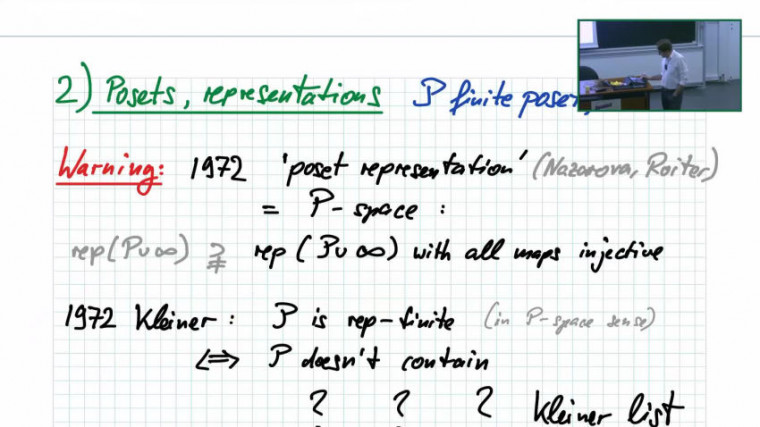 2) Posets, representations P finite poset,
Warning: 1972 'poset representation' (Nazarova, Roiter)
= P-space :
rep(P∪∞) ⊋ rep (P∪∞) with all maps injective
1972 Kleiner : P is rep-finite (in P-space sense)
⇔ P doesn't contain
Kleiner list